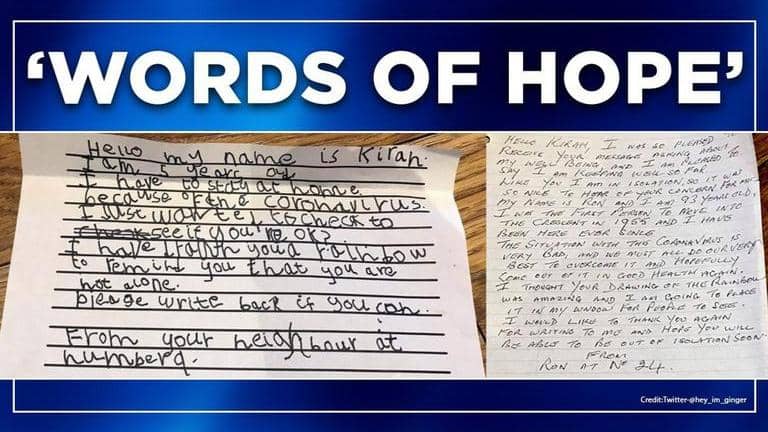 ‘WORDS OF HOPE’
Hello my name is Kirah.
I am 5 years old
I have to stay at home
because of the coronavirus.
I Just wanted to check to
see if you're ok?
I have drawn you a rainbow
to remind you that you are
not alone.
please write back if you can.
From your neighbour at
number 9.
HELLO KIRAH, I WAS SO PLEASED TO
RECEIVE YOUR MESSAGE ASKING ABOUT
MY WELL BEING, AND I AM PLEASED TO
SAY I AM KEEPING WELL SO FAR
LIKE YOU I AM IN ISOLATION, SO IT WAS
SO NICE TO HEAR OF YOUR CONCERN FOR ME.
MY NAME IS RON AND I AM 93 YEARS OLD,
I WAS THE FIRST PERSON TO MOVE INTO
THE CRESCENT IN 1955 AND I HAVE
BEEN HERE EVER SINCE
THE SITUATION WITH THIS CORONAVIRUS IS
VERY BAD, AND WE MUST ALL DO OUR VERY
BEST TO OVERCOME IT AND HOPEFULLY
COME OUT OF IT IN GOOD HEALTH AGAIN.
I THOUGHT YOUR DRAWING OF THE RAINBOW
WAS AMAZING AND I AM GOING TO PLACE
IT IN MY WINDOW FOR PEOPLE TO SEE.
I WOULD LIKE TO THANK YOU AGAIN
FOR WRITING TO ME AND HOPE YOU WILL
BE ABLE TO BE OUT OF ISOLATION SOON.
FROM
RON AT Nº 24.
Credit:Twitter-@hey_im_ginger